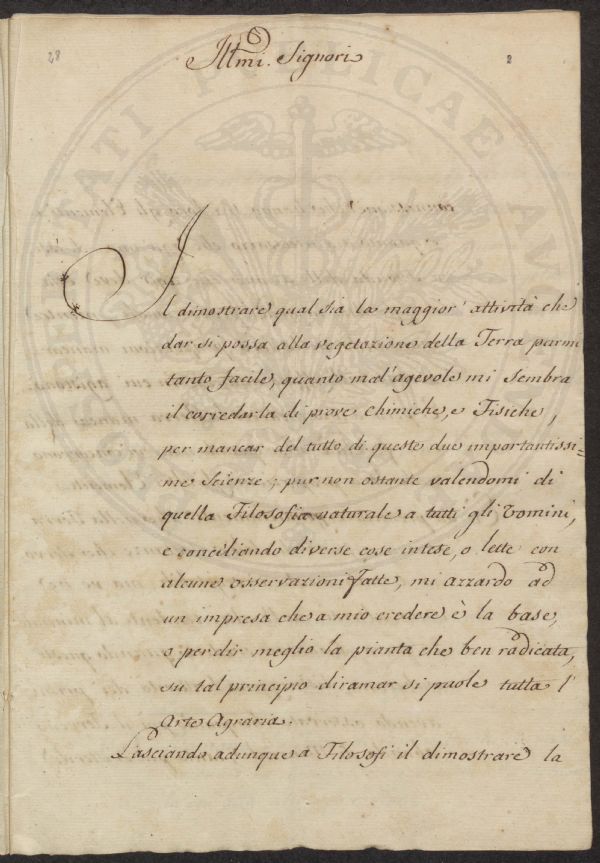 28
2
Illmi. Signori
Il dimostrare qual sia la maggior' attività che
dar si possa alla vegetazione della Terra parmi
tanto facile, quanto mal'agevole mi sembra
il corredarla di prove Chimiche, e Fisiche,
per mancar del tutto di queste due importantissi=
me Scienze; pur non ostante valendomi di
quella Filosofia naturale a tutti gli Uomini,
e conciliando diverse cose intese, o lette con
alcune osservazioni fatte, mi azzardo ad
un impresa che a mio credere è la base,
o per dir meglio la pianta che ben radicata,
su tal principio diramar si puole tutta l'
Arte Agraria.
Lasciando adunque a Filosofi il dimostrare la